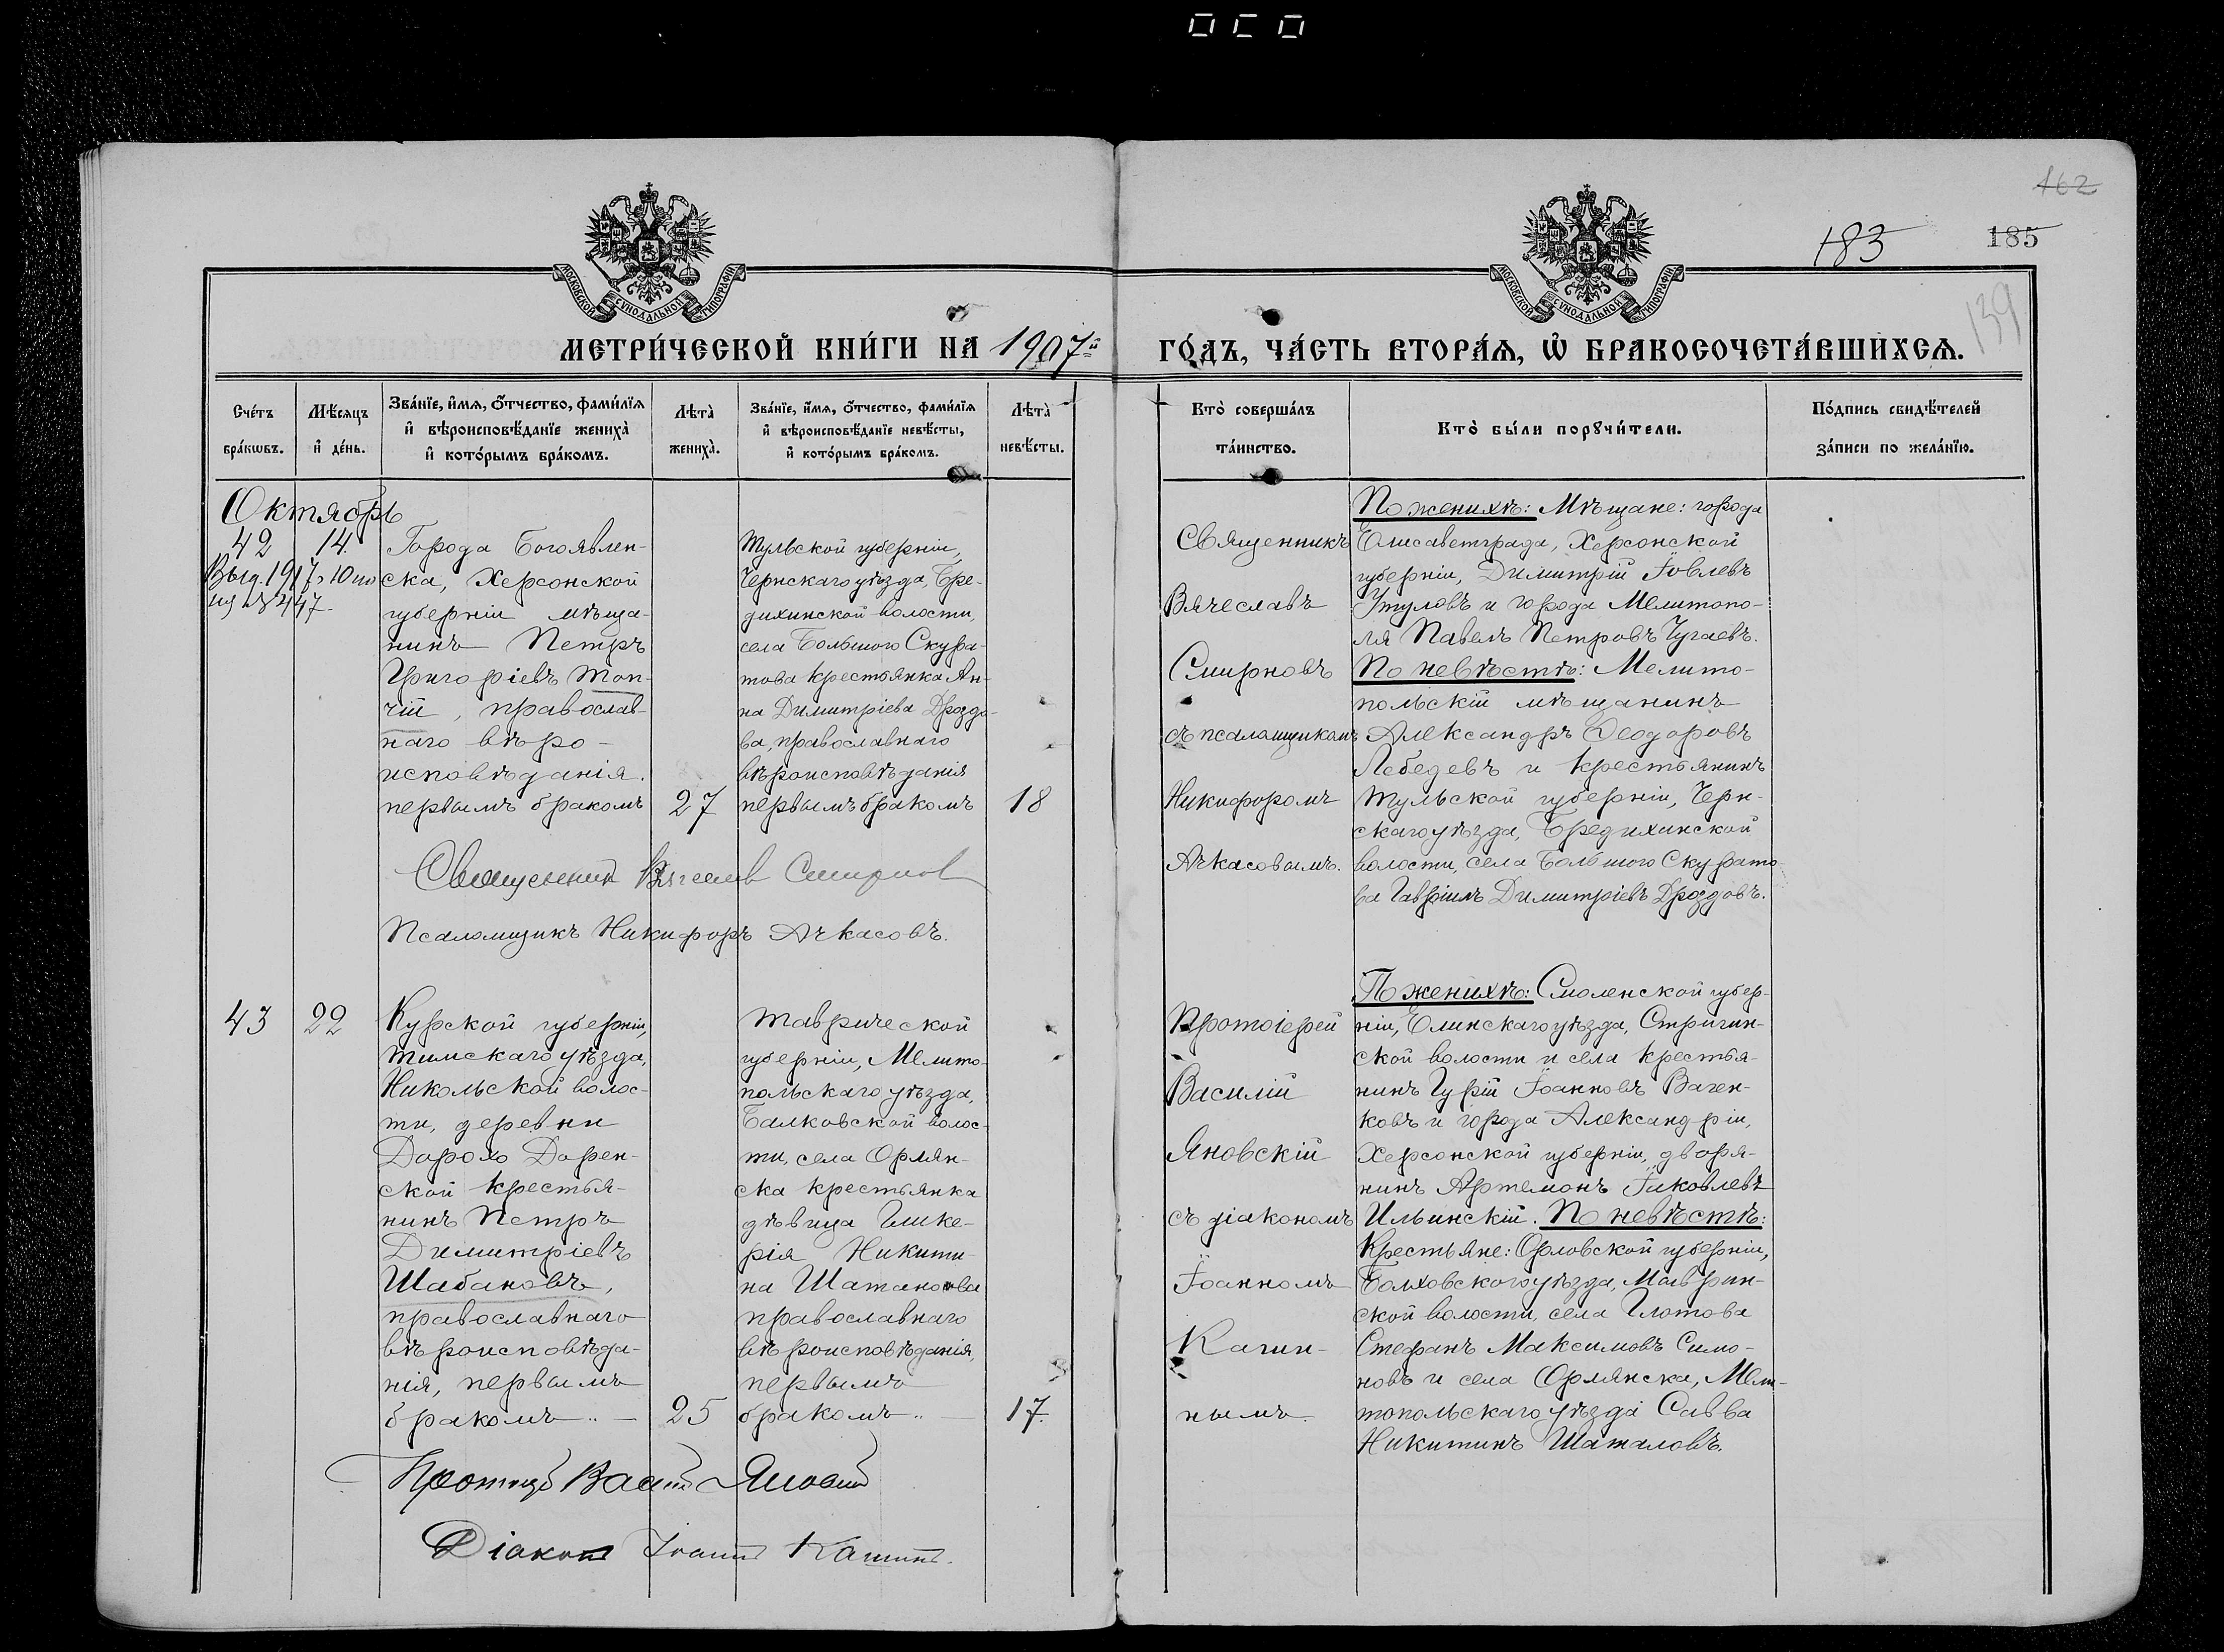 162
183
185
139
МОСКОВСКОЙ СѴНОДАЛЬНОЙ ТИПОГРАФІИ
МОСКОВСКОЙ СѴНОДАЛЬНОЙ ТИПОГРАФІИ
МЕТРИ́ЧЕСКОЙ КНИ́ГИ НА 1907й ГО́ДЪ, ЧА́СТЬ ВТОРА́Ѧ, Ѿ БРАКОСОЧЕТА́ВШИХСѦ.
Сче́тъ бра́кѡвъ.
Мѣ́сяцъ и҆ де́нь.
Зва́нїе, и҆́мѧ, ѻ҆́тчество, фами́лїѧ
и҆ вѣроисповѣ́данїе жениха̀
и҆ кото́рымъ бра́комъ.
Лѣта̀ жениха̀.
Зва́нїе, и҆́мѧ, ѻ҆́тчество, фами́лїѧ
и҆ вѣроисповѣ́данїе невѣ́сты,
и҆ кото́рымъ бра́комъ.
Лѣта̀ невѣ́сты.
Кто̀ соверша́лъ та́инство.
Кто̀ бы́ли порꙋчи́тели.
По́дпись свидѣ́телей за́писи по жела́нїю.
Октябрь
42
14.
Выд. 1917 г. 10
№ 447
Города Богоявлен-
ска, Херсонской
губерніи мѣща-
нинъ Петръ
Григоріевъ Топ-
чій, православ-
наго вѣро-
исповѣданія.
первымъ бракомъ
27
Тульской губерніи,
Чернскаго уѣзда, Бре-
дихинской волости,
села Большого Скура-
това крестьянка Ан-
на Димитріева Дроздо-
ва, православнаго
вѣроисповѣданія
первымъ бракомъ
18
Священникъ
Вячеславъ
Смирновъ
съ псаломщикомъ
Никифоромъ
Ачкасовымъ.
По женихѣ: Мѣщане: города
Елисаветграда, Херсонской
губерніи, Димитрій Іовлевъ
Утуловъ и города Мелитопо-
ля Павелъ Петровъ Чугаевъ.
По невѣстѣ: Мелито-
польскій мѣщанинъ
Александръ Ѳеодоровъ
Лебедевъ и крестьянинъ
Тульской губерніи, Черн-
скаго уѣзда, Бредихинской
волости, села Большого Скурато-
ва Гавріилъ Димитріевъ Дроздовъ.
Священник Вячеслав Смирнов
Псаломщикъ Никифоръ Ачкасовъ.
43
22
Курской губерніи,
Тимскаго уѣзда,
Никольской волос-
ти, деревни
Дорохо Дорен-
ской крестья-
нинъ Петръ
Димитріевъ
Шабановъ,
православнаго
вѣроисповѣда-
нія, первымъ
бракомъ.. —
25
Таврической
губерніи, Мелито-
польскаго уѣзда,
Балковской волос-
ти, села Орлян-
ска крестьянка
дѣвица Глике-
рія Никити-
на Шаталова
православнаго
вѣроисповѣданія,
первымъ
бракомъ.. —
17.
Протоіерей
Василій
Яновскій
съ діакономъ
Іоанномъ
Кагин-
нымъ.
По женихѣ: Смоленской губер-
ніи, Елинскаго уѣзда, Стригин-
ской волости и села крестья-
нинъ Гурій Іоанновъ Вачен-
ковъ и города Александріи,
Херсонской губерніи, дворя-
нинъ Артемонъ Іаковлевъ
Ильинскій. По невѣстѣ:
Крестьяне: Орловской губерніи,
Болховскаго уѣзда, Маврин-
ской волости, села Глотова
Стефанъ Максимовъ Симо-
новъ и села Орлянска, Мели-
топольскаго уѣзда Савва
Никитинъ Шаталовъ.
Діаконъ Іоаннъ